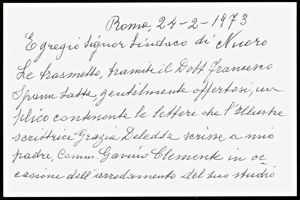 Roma, 24-2-1973
Egregio Signor Sindaco di Nuoro
Le trasmetto, tramite il Dott. Francesco
Spanu Satta, gentilmente offertosi, un
plico contenente le lettere che l'Illustre
scrittrice Grazia Deledda scrisse a mio
padre, Comm. Gavino Clemente in oc
casione dell'arredamento del suo studio